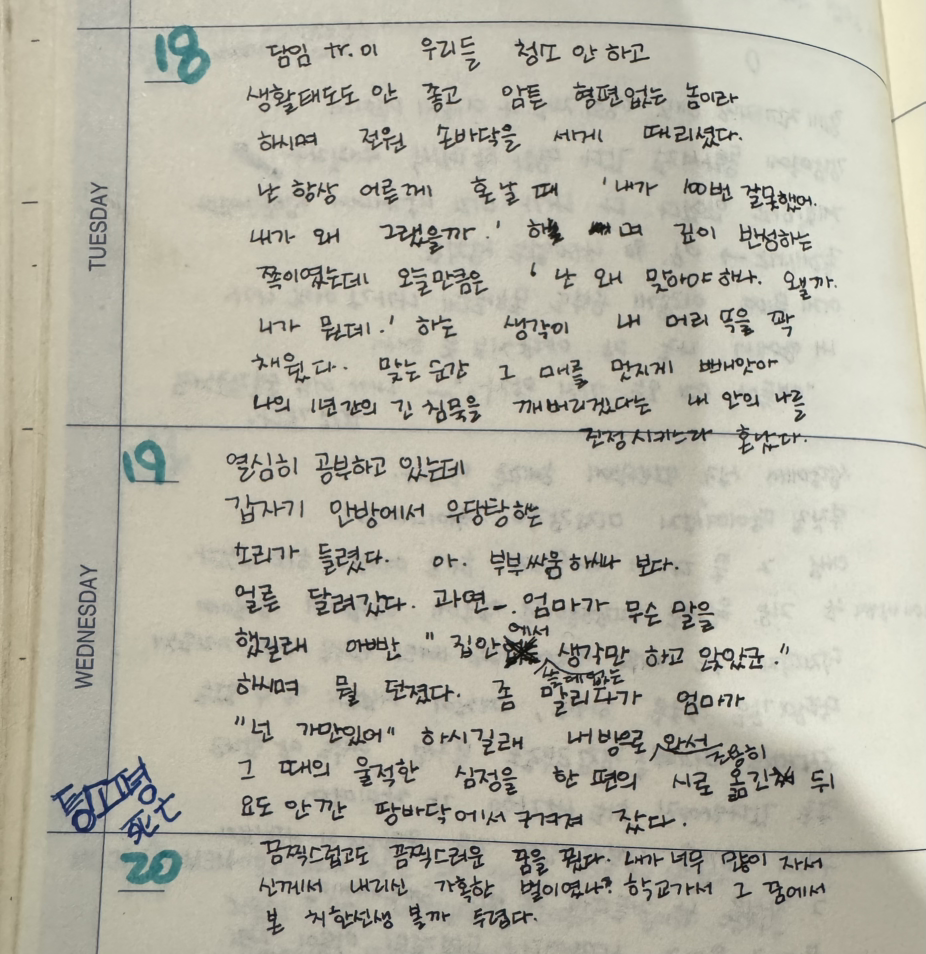 18
담임 tr.이 우리들 청소 안 하고
생활태도도 안 좋고 암튼 형편없는 놈이라
하시며 전원 손바닥을 세게 때리셨다.
난 항상 어른께 혼날 때 '내가 100번 잘못했어.
내가 왜 그랬을까.' 하며 깊이 반성하는
쪽이였는데 오늘만큼은 '난 왜 맞아야 하나. 왜일까.
니가 뭔데.' 하는 생각이 내 머리 뚝을 꽉
채웠다. 맞는 순간 그 매를 멋지게 빼앗아
나의 1년간의 긴 침묵을 깨버리겠다는 내 안의 나를
진정시키느라 혼났다.
TUESDAY
19
열심히 공부하고 있는데
갑자기 안방에서 우당탕하는
소리가 들렸다. 아. 부부싸움하시나 보다.
얼른 달려갔다. 과연-. 엄마가 무슨 말을
했길래 아빤 "집안에서 쓸데없는 생각만 하고 앉았군."
하시며 뭘 던졌다. 좀 말리다가 엄마가
"넌 가만있어" 하시길래 내방으로 와서 조용히
그 때의 울적한 심정을 한 편의 시로 옮긴 뒤
요도 안깐 땅바닥에서 구겨져 잤다.
WEDNESDAY
등소평
死亡
20
끔찍스럽고도 끔찍스러운 꿈을 꿨다. 내가 너무 많이 자서
신께서 내리신 가혹한 벌이였나? 학교가서 그 꿈에서
본 치한선생 볼까 두렵다.